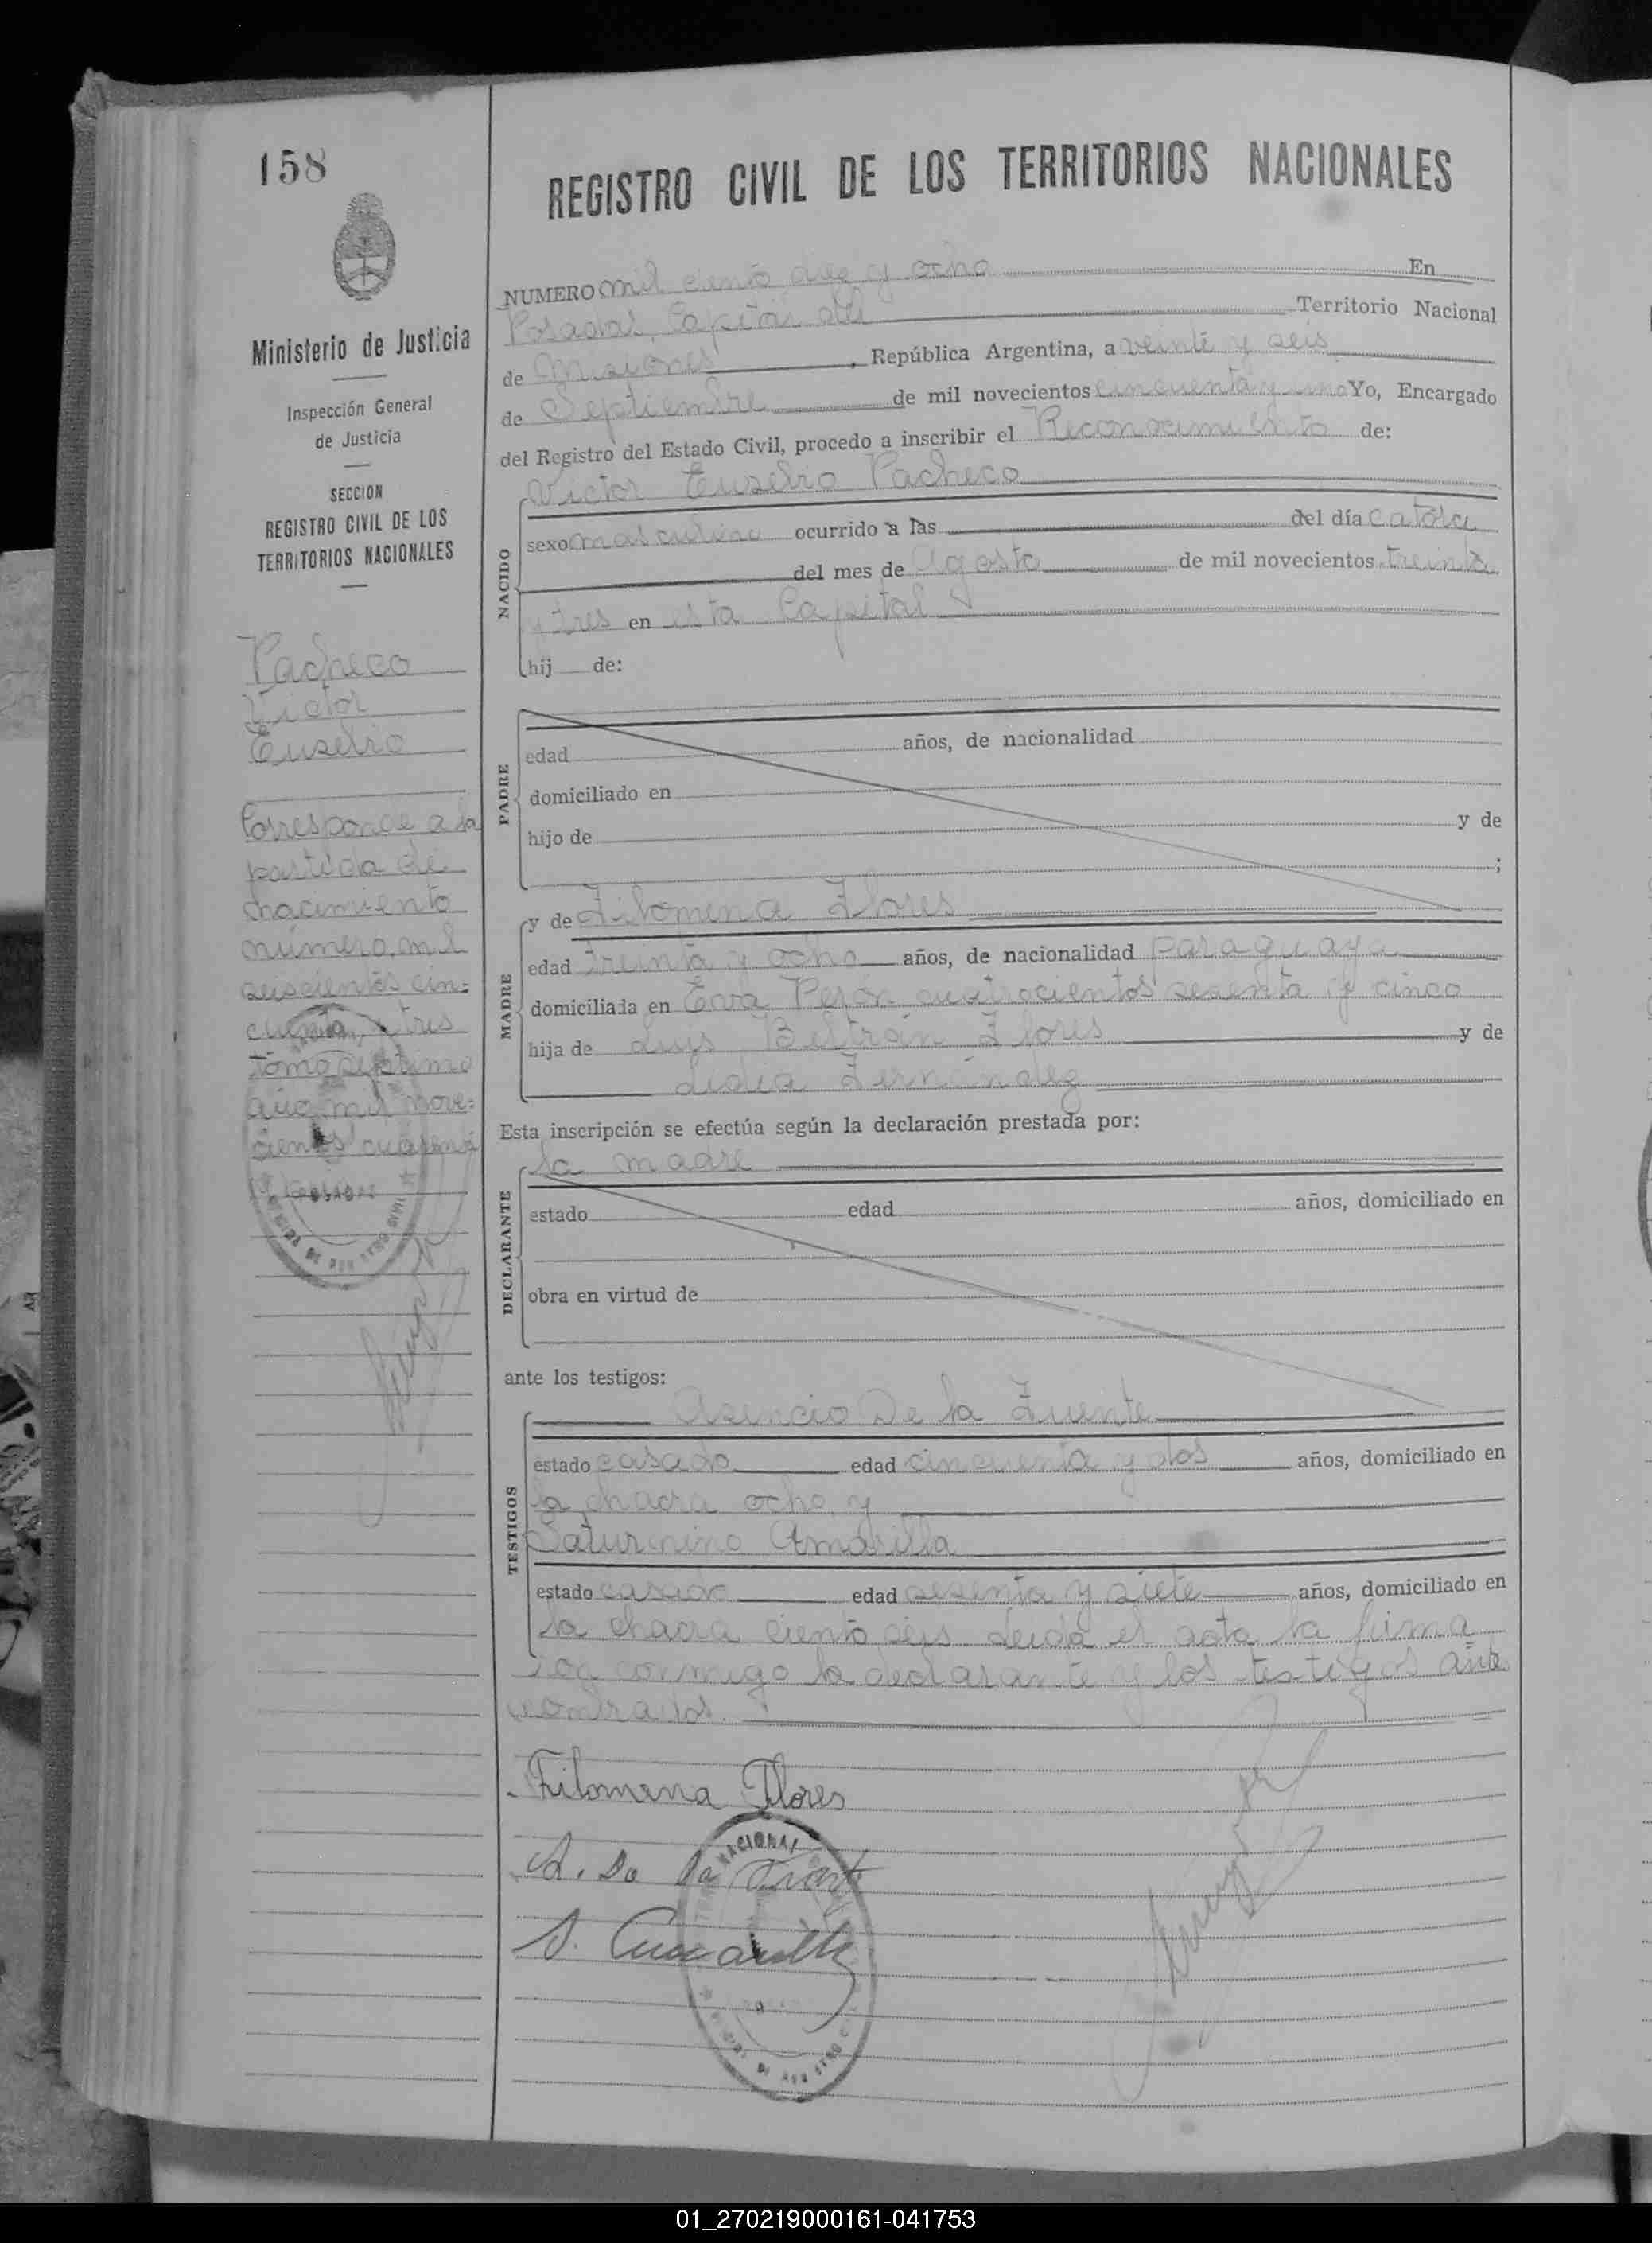 158
Ministerio de Justicia
Inspección General
de Justicia
SECCION
REGISTRO CIVIL DE LOS
TERRITORIOS NACIONALES
Pacheco
Victor
Eusebio
Corresponde a la
partida de
nacimiento
número mil
seiscientos cin=
cuenta y tres
tomo septimo
año mil nove=
cientos cuarenta
POSADAS
REGISTRO CIVIL DE LOS TERRITORIOS NACIONALES
NUMERO mil ciento diez y ocho En
Posadas, Capital del Territorio Nacional
de Misiones, República Argentina, a veinte y seis
de Septiembre de mil novecientos cincuenta y uno Yo, Encargado
del Registro del Estado Civil, procedo a inscribir el Reconocimiento de:
Victor Eusebio Pacheco
NACIDO
sexo masculino ocurrido a las del día catorce
del mes de Agosto de mil novecientos treinta
y tres en esta Capital
hij de:
PADRE
edad años, de nacionalidad
domiciliado en
hijo de y de
;
MADRE
y de Filomena Flores
edad treinta y ocho años, de nacionalidad paraguaya
domiciliada en Eva Perón cuatrocientos sesenta y cinco
hija de Luys Beltrán Flores y de
Lidia Fernández
Esta inscripción se efectúa según la declaración prestada por:
DECLARANTE
la madre
estado edad años, domiciliado en
obra en virtud de
ante los testigos:
TESTIGOS
Asencio De la Fuente
estado casado edad cincuenta y dos años, domiciliado en
la chacra ocho y
Saturnino Amarilla
estado casado edad sesenta y siete años, domiciliado en
la chacra ciento seis Leida el acta la firma
ron conmigo la declarante y los testigos ante
nombrados.
Filomena Flores
A. De la Fuente
S. Amarilla
NACIONAL
01_270219000161-041753